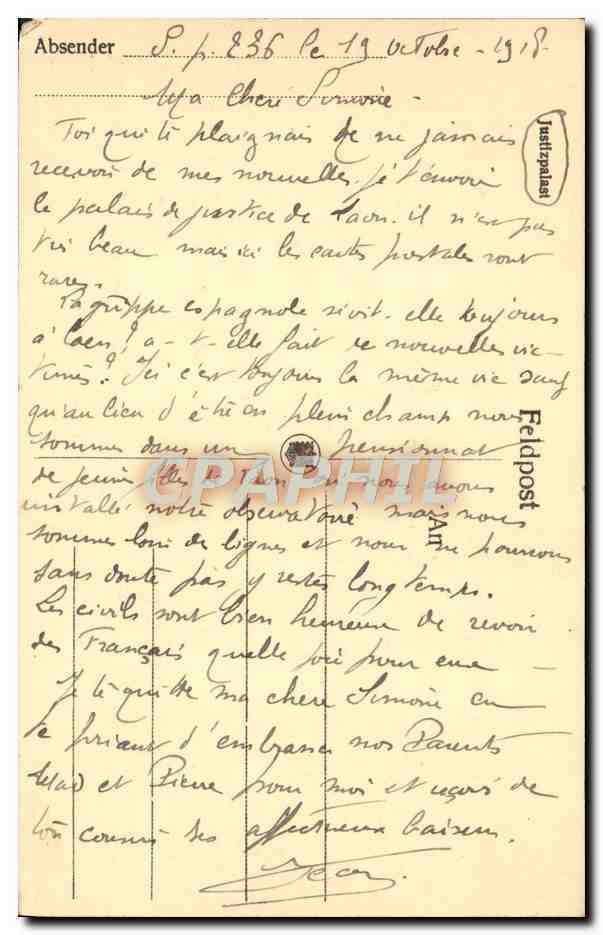 Absender S. p. 236 le 19 octobre - 1918
Ma chère Simone -
Justizpalast
Toi qui te plaignais de ne jamais
recevoir de mes nouvelles. je t'envoie
le palais de justice de Laon. il n'est pas
très beau mais ici les cartes postales sont
rares.
La grippe espagnole sévit-elle toujours
à Caen? a-t-elle fait de nouvelles vic-
times? Ici c'est toujours la même vie sauf
qu'au lieu d'être en plein champ nous
Feldpost
sommes dans un pensionnat
de jeunes filles de Laon où nous avons
CPAPHIL
installé notre observatoire mais nous
An
sommes loin des lignes et nous ne pouvons
sans doute pas y rester longtemps.
Les civils sont bien heureux de revoir
des Français quelle joie pour eux -
Je te quitte ma chère Simone en
te priant d'embrasser nos Parents
Mad et Pierre pour moi et reçois de
ton cousin des affectueux baisers.
Jean